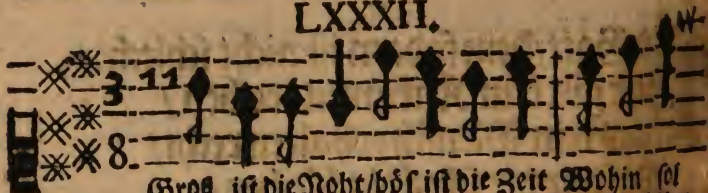 LXXXII.
3 11
8.
Groß iſt die Noht/böſ iſt die Zeit Wohin ſol